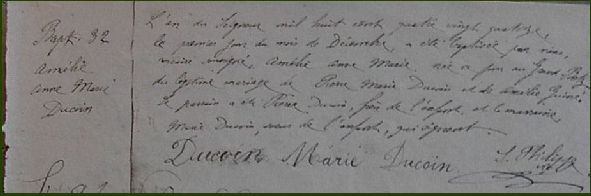 Bapt. 32
Amélie
Anne Marie
Ducoin
L'an du Seigneur mil huit cent quatre vingt quatorze,
le premier jour du mois de Décembre, a été baptisée par nous,
vicaire, Amélie Anne Marie, née ce jour au Grand
du légitime mariage de Marie Ducoin et de Amélie
Le parrain a été Ducoin, frère de l'enfant, et la marraine,
Marie Ducoin, sœur de l'enfant, qui signent.
Ducoin Marie Ducoin